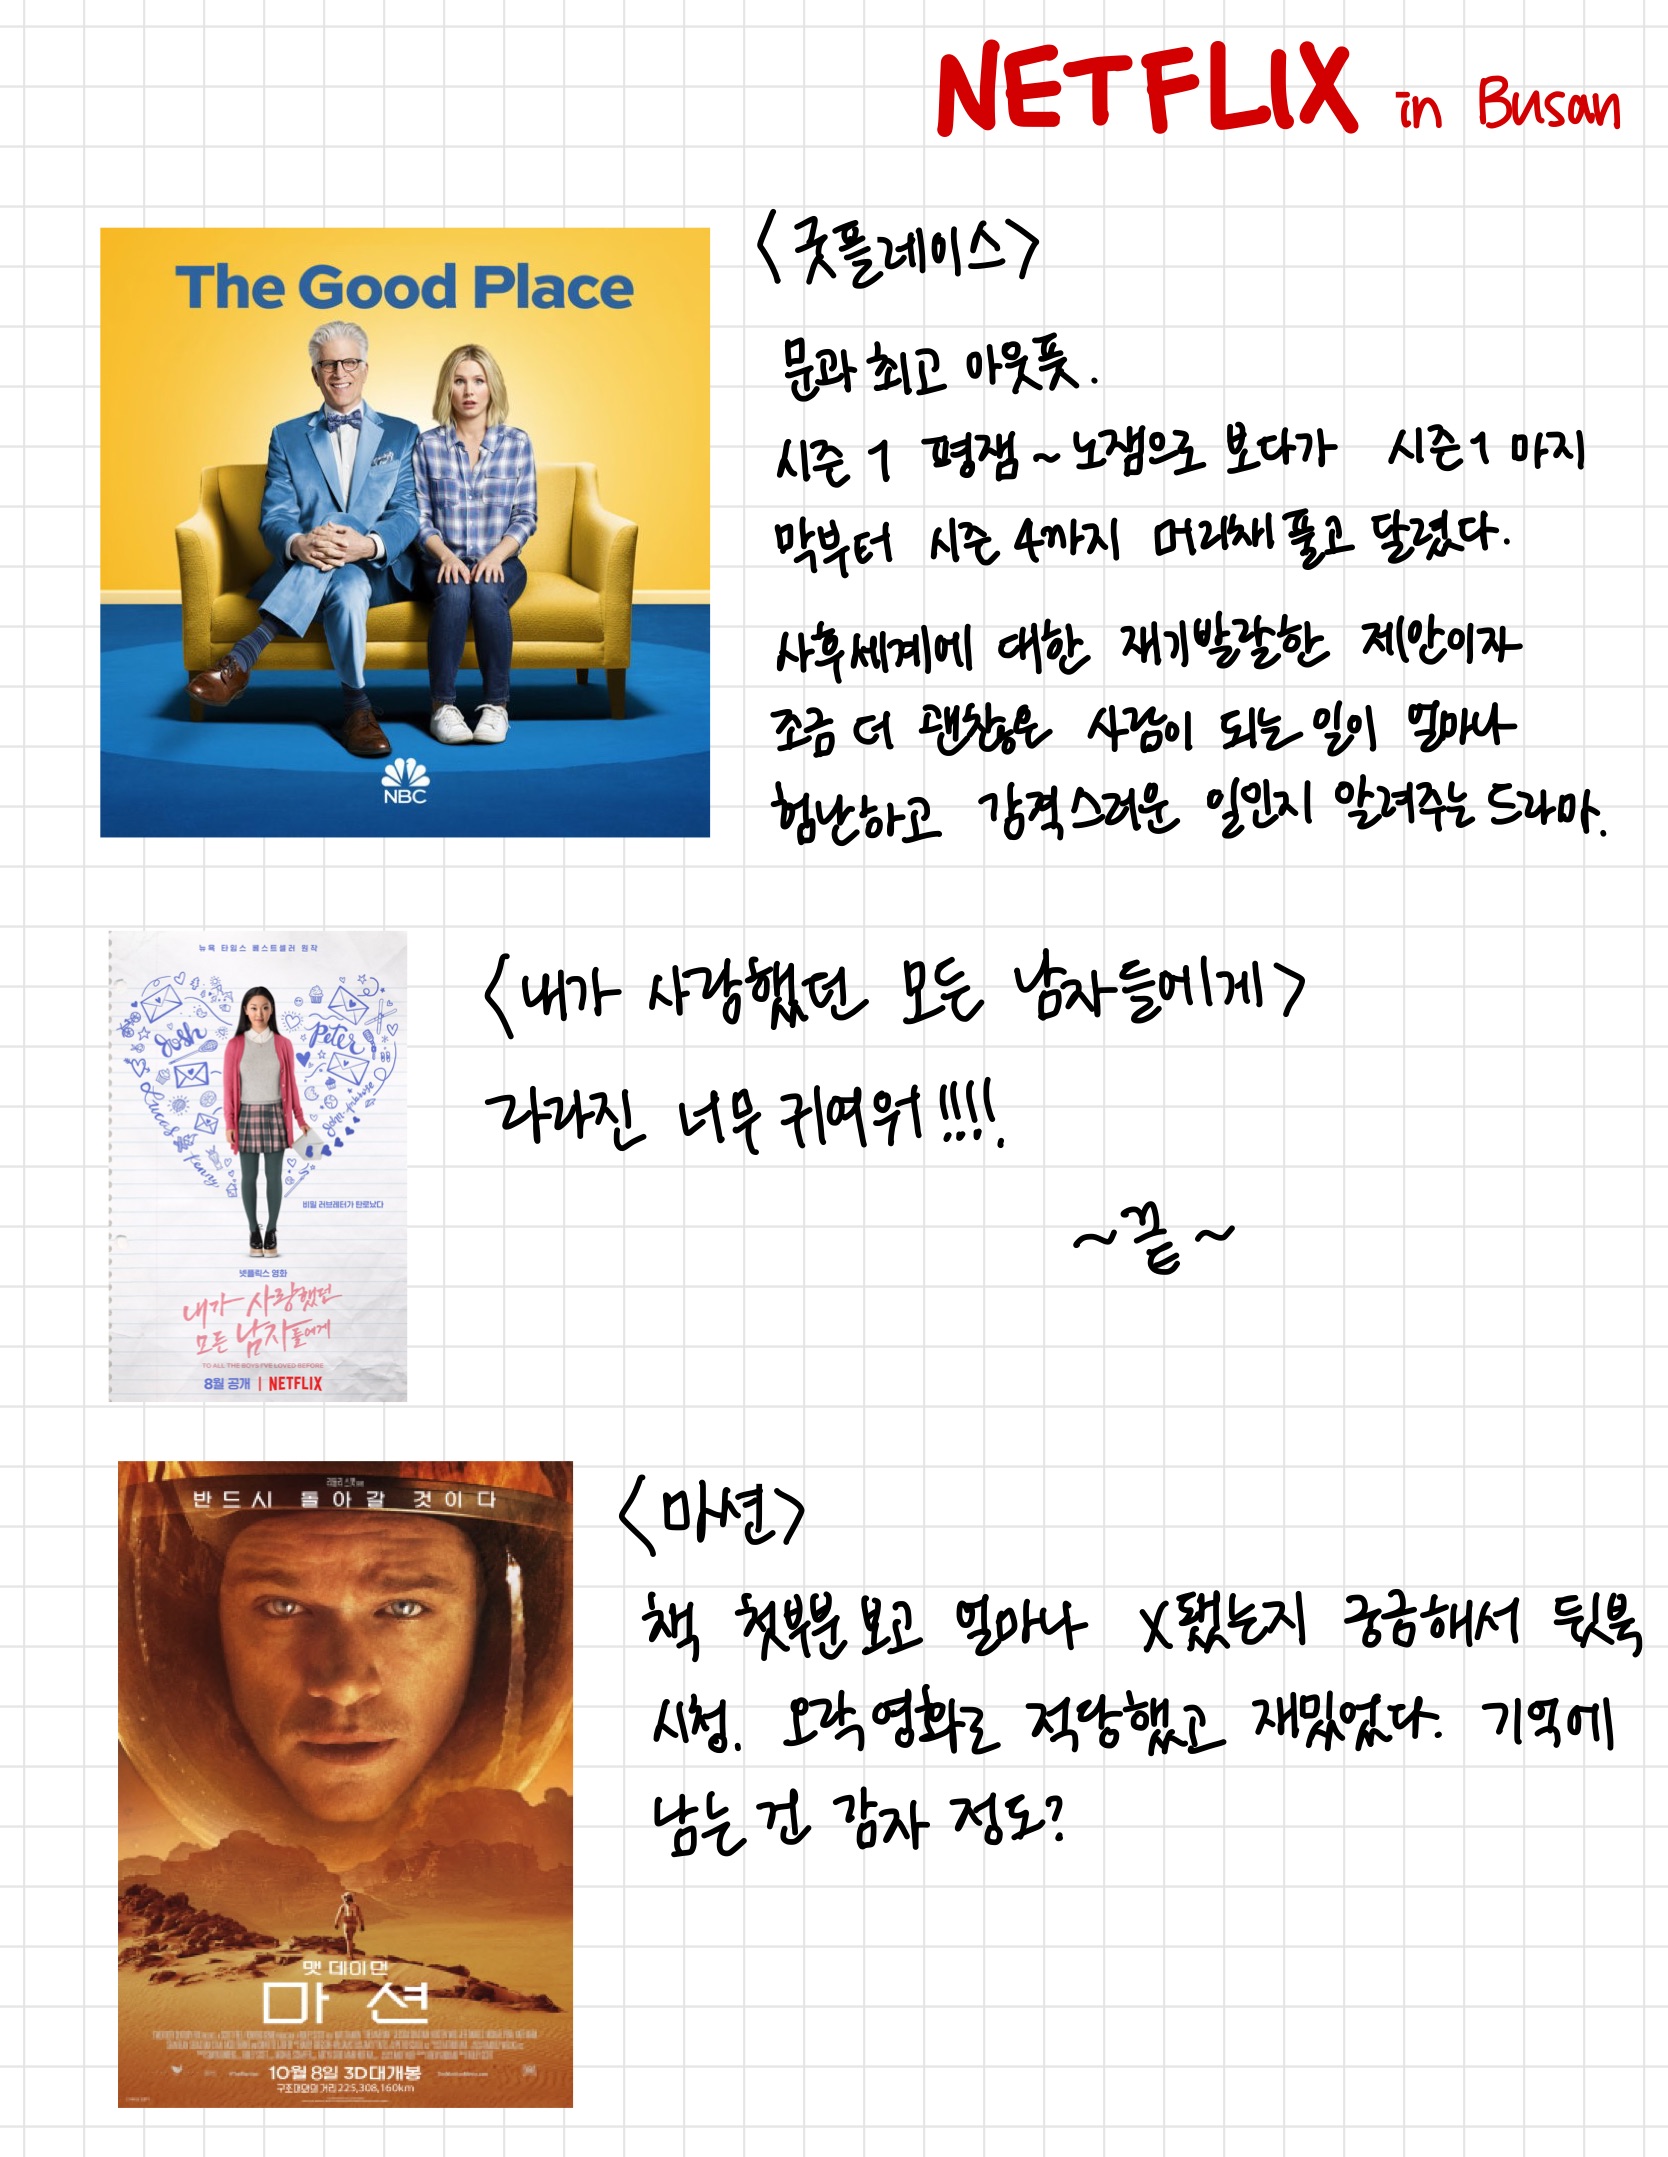 NETFLIX in Busan
The Good Place
NBC
<굿플레이스>
문과 최고 아웃풋.
시즌 1 평잼~노잼으로 보다가 시즌1 마지
막부터 시즌 4까지 머리채 풀고 달렸다.
사후세계에 대한 재기발랄한 제안이자
조금 더 괜찮은 사람이 되는 일이 얼마나
험난하고 감격스러운 일인지 알려주는 드라마.
뉴욕 타임스 베스트셀러 원작
Josh
Peter
Lucas
Kenny
비밀 러브레터가 탄로났다
넷플릭스 영화
내가 사랑했던
모든 남자들에게
TO ALL THE BOYS I'VE LOVED BEFORE
8월 공개 | NETFLIX
<내가 사랑했던 모든 남자들에게>
라라진 너무 귀여워!!!!
~끝~
반드시 돌아갈 것이다
맷 데이먼
마션
10월 8일 3D대개봉
구조대와의 거리 225,308,160km
<마션>
책 첫부분 보고 얼마나 X됐는지 궁금해서 뒷북
시청. 오락영화로 적당했고 재밌었다. 기억에
남는 건 감자 정도?